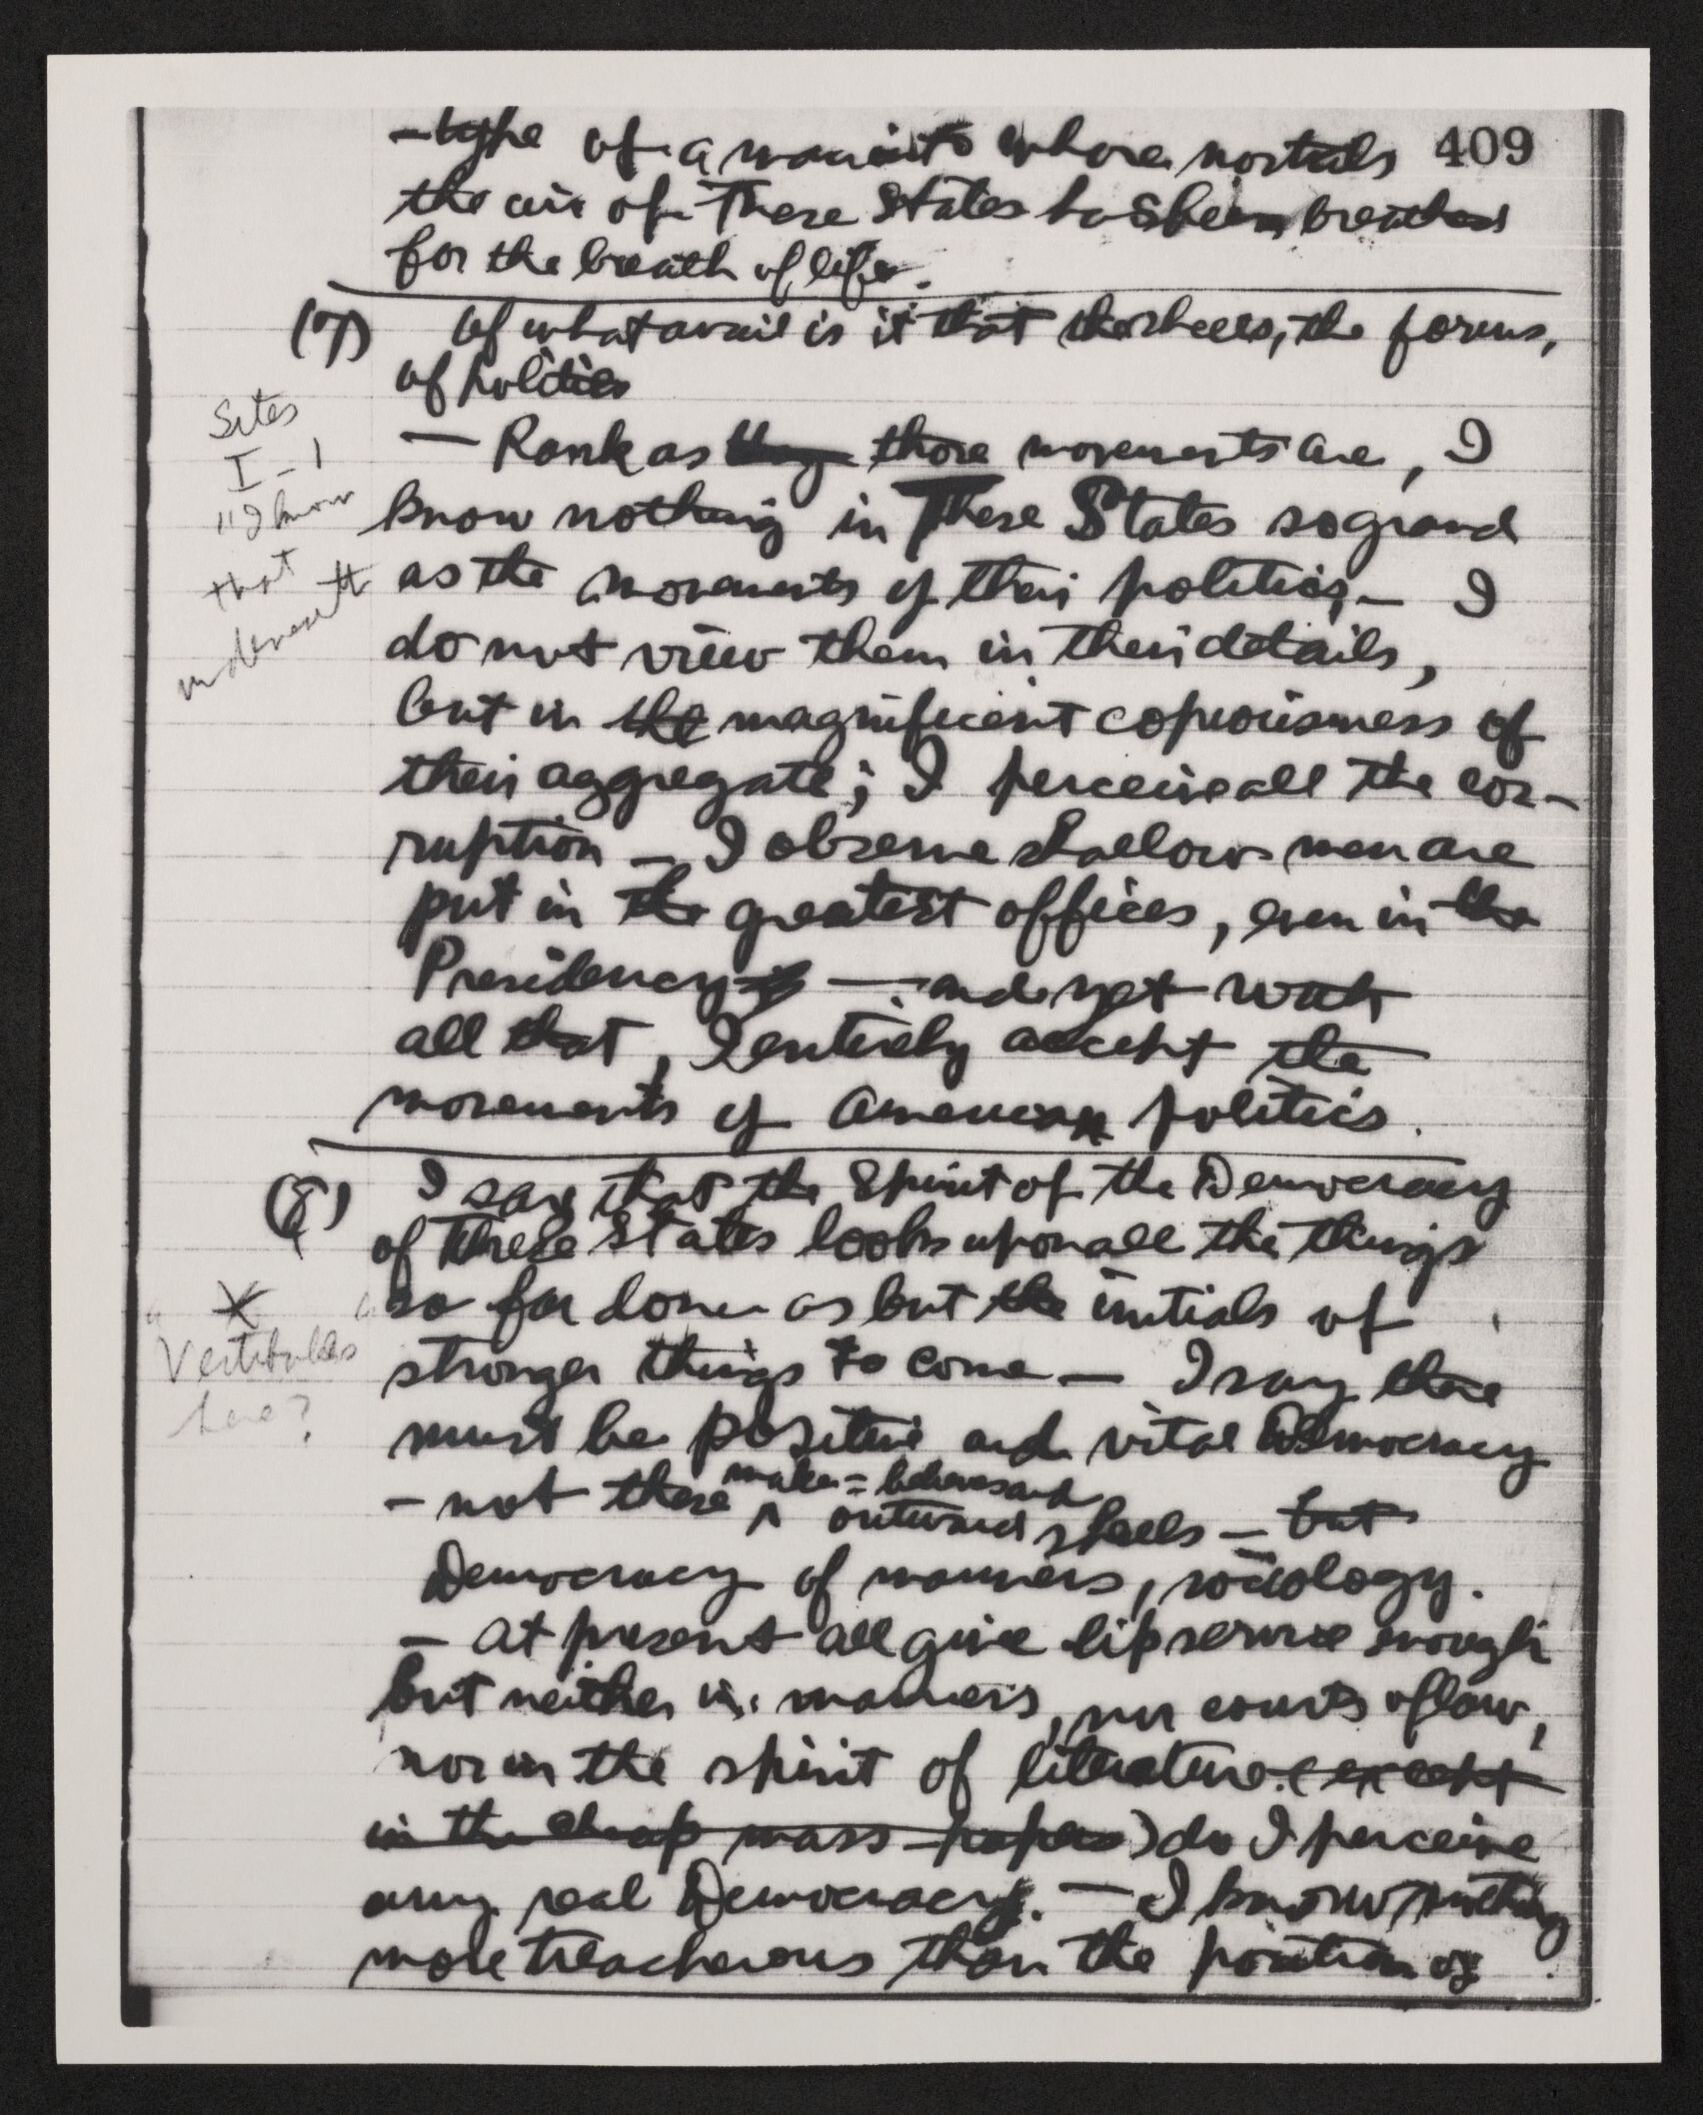 409
-type of a            whose nostrils
the air of These States has been breathed
for the breath of life.
(7) Of what avail is it that the shells, the forms,
of politics
— Rank as they those movements are, I
know nothing in These States so grand
as the movements of their politics — I
do not view them in their details,
but in the magnificent copiousness of
their aggregate; I perceive all the cor-
ruption — I observe shallow men are
put in the greatest offices, even in the
Presidency — and yet with
all that, I entirely accept the
movements of American politics.
(8) I say that the Spirit of the Democracy
of These States looks upon all the things
so far done as but the initials of
stronger things to come — I say there
must be positive and vital Democracy
make-believes and
- not these ^ outward shells — but
Democracy of manners, sociology.
— at present all give lip service enough
but neither in manners, nor courts of law,
nor in the spirit of literature (except
in the cheap mass-papers) do I perceive
any real Democracy. — I know nothing
more treacherous than the position of
Sites
I - 1
"I know
that
underneath
X
"Vestibules"
here?